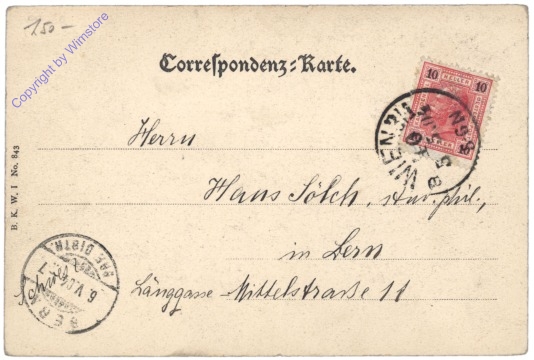 150 –
Copyright by Wimstore
Correspondenz-Karte.
10 HELLER 10
WIEN
Herrn
Hans Sölch, stud. phil.,
in Bern
Länggasse Mittelstrasse 11
B. K. W. I No. 843
BERN
6. V. 04. 7